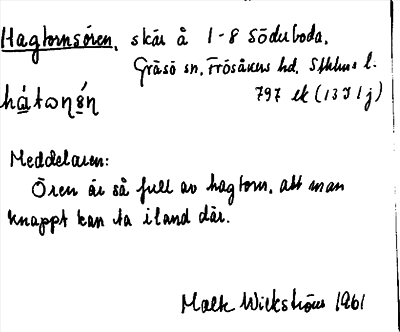 Hagtornsören, skär å 1-8 Söderboda,
Gräsö sn, Frösåkers hd, Sthlms l.
797 ek (13 I 1 j)
Meddelaren:
Ören är så full av hagtorn, att man
knappt kan ta i land där.
Wickström 1961